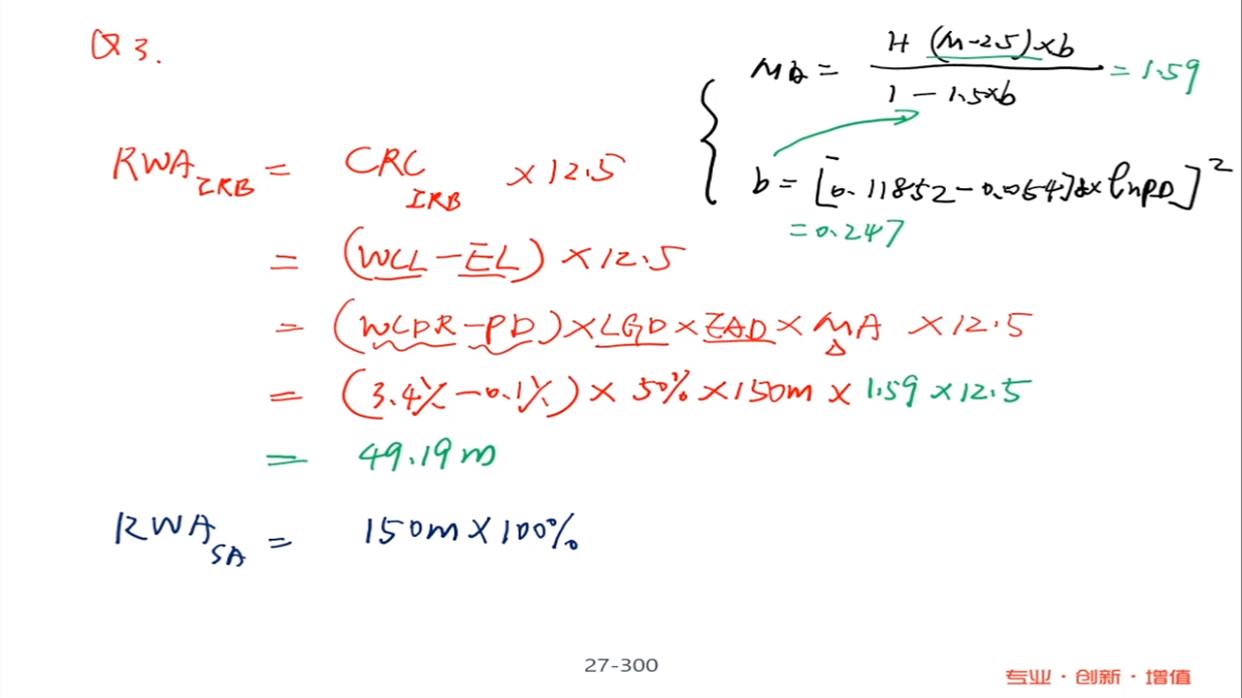 Q3.
MA = 1+(M-2.5)×b / 1-1.5×b = 1.59
b = [0.11852-0.05478×lnPD]²
= 0.247
RWA IRB = CRC IRB ×12.5
= (WCL-EL)×12.5
= (WCDR-PD)×LGD×EAD×MA×12.5
= (3.4%-0.1%)×50%×150m×1.59×12.5
= 49.19m
RWA SA = 150m×100%
27-300
专业·创新·增值